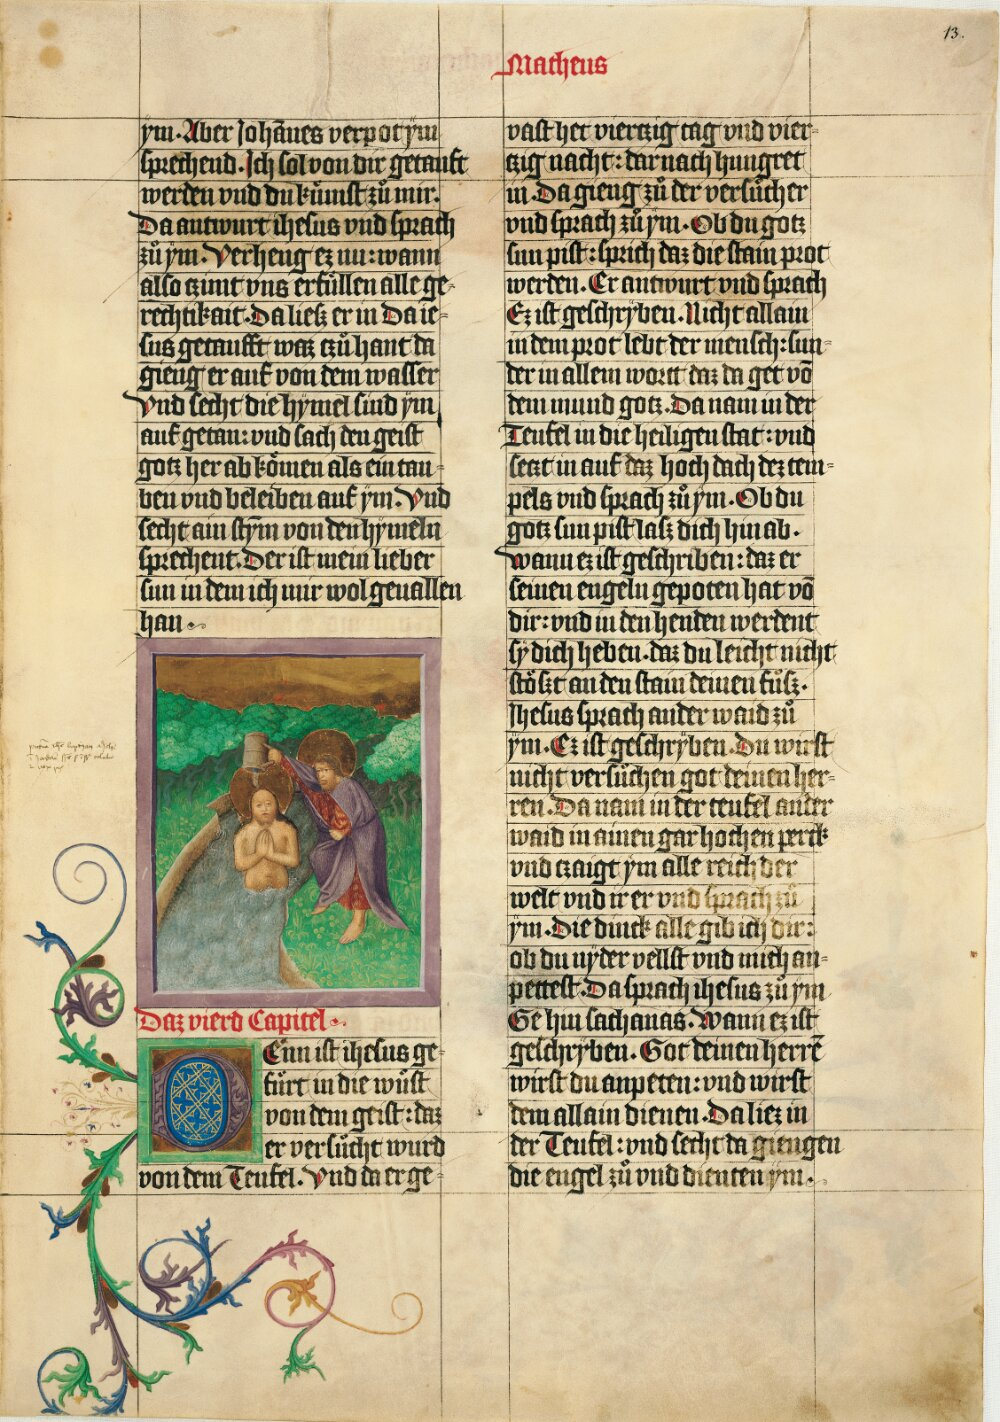 13.
Matheus
ym. Aber Johānes verpot ym
sprechend. Ich sol von dir getauft
werden vnd du kümst zů mir.
Da antwurt ihesus vnd sprach
zů ym. Verheng ez nu: wann
also tzimt vns erfüllen alle ge-
rechtikait. Da liesz er in Da ie-
sus getaufft waz tzů hant da
gieng er auf von dem wasser
Vnd secht die hymel sind ym
auf getan: vnd sach den geist
gotz her ab kömen als ein tau-
ben vnd beleiben auf ym. Vnd
secht ain stym von den hymeln
sprechent. Der ist mein lieber
sun in dem ich mir wol geuallen
han
Daz vierd Capitel
Denn ist ihesus ge-
fürt in die wůst
von dem geist: daz
er versůcht wurd
von dem Teufel. Vnd da er ge-
vast het viertzig tag vnd vier-
tzig nacht: dar nach hungret
in. Da gieng zů der versůcher
vnd sprach zů ym. Ob du gotz
sun pist: sprich daz die stain prot
werden. Er antwurt vnd sprach
Ez ist geschryben. Nicht allain
in dem prot lebt der mensch: sun-
der in allem wortt daz da get vō
dem mund gotz. Da nam in der
Teufel in die heiligen stat: vnd
setzt in auf daz hoch dach dez tem-
pels vnd sprach zů ym. Ob du
gotz sun pist lasz dich hin ab.
wann ez ist geschriben: daz er
seinen engeln gepoten hat vō
dir: vnd in den henden werdent
sy dich heben. daz du leicht nicht
stöszt an den stain deinen fůsz.
Ihesus sprach ander waid zů
ym. Ez ist geschryben. Du wirst
nicht versůchen got deinen her-
ren. Da nam in der teufel ander
waid in ainen gar hochen perck
vnd tzaigt ym alle reich der
welt vnd ir er vnd sprach zů
ym. Die dinck alle gib ich dir:
ob du nyder vellst vnd mich an-
pettest. Da sprach ihesus zů ym
Ge hin sathanas. Wann ez ist
geschryben. Got deinen herrē
wirst du anpeten: vnd wirst
dem allain dienen. Da liez in
der Teufel: vnd secht da giengen
die engel zů vnd dienten ym.